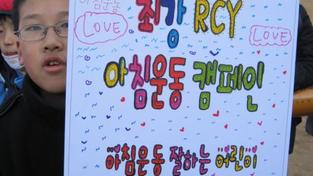 아침운동
LOVE
최강 RCY
LOVE
아침운동 캠페인
아침운동 잘하는 어린이